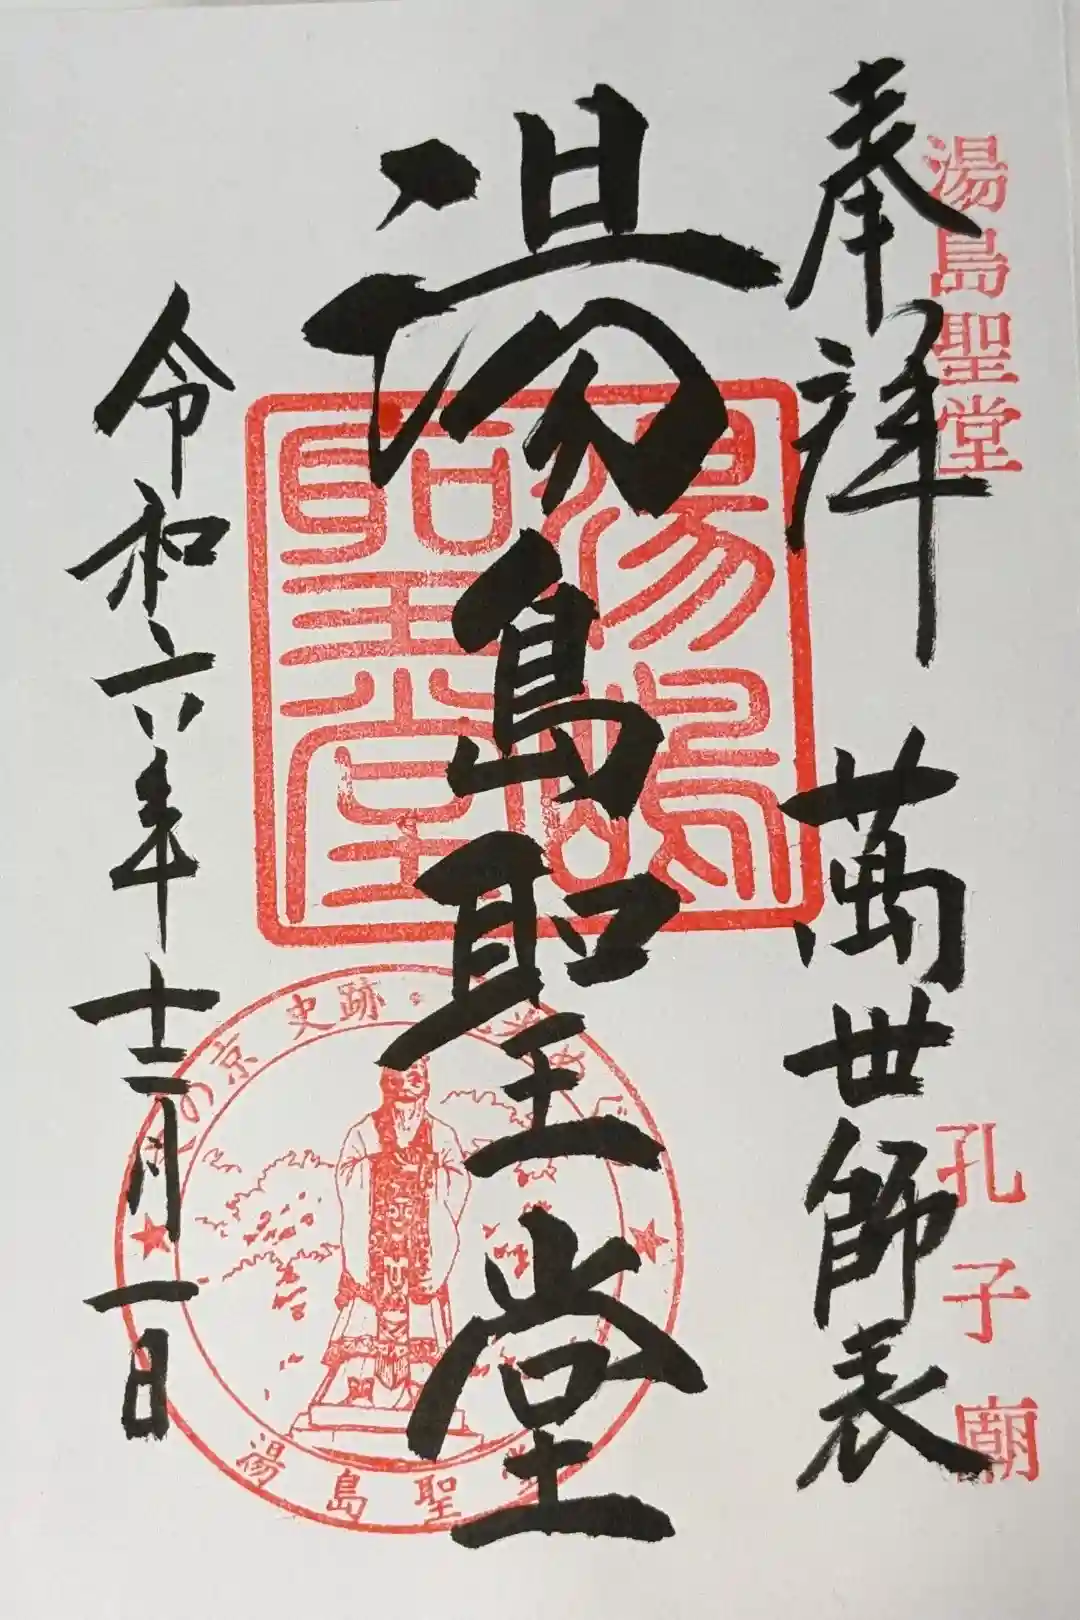 湯島聖堂
孔子廟
奉拜 萬世師表
湯島聖堂
湯嶋聖堂
令和六年十二月一日
の京 史跡
湯島聖堂